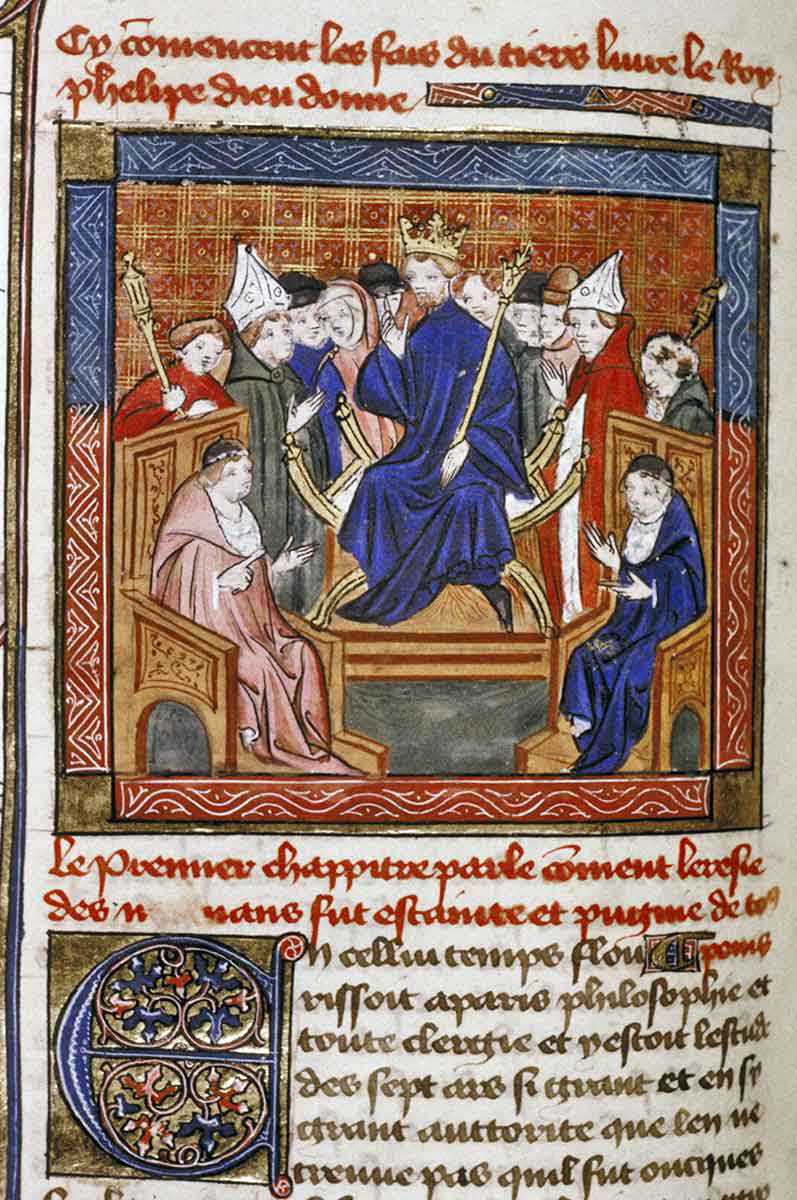 Cy cōmencent les fais du tiers livre le Roy
phelipe dieu donne
le premier chappitre parle cōment leresie
des nans fut estainte et puignie de toꝰ
En celluy temps flou poins
rissoit a paris philosophie et
toute clergie et y estoit lestude
des sept ars si grant et en sy
grant auttorite que len ne
treuue pas quil fut oncques